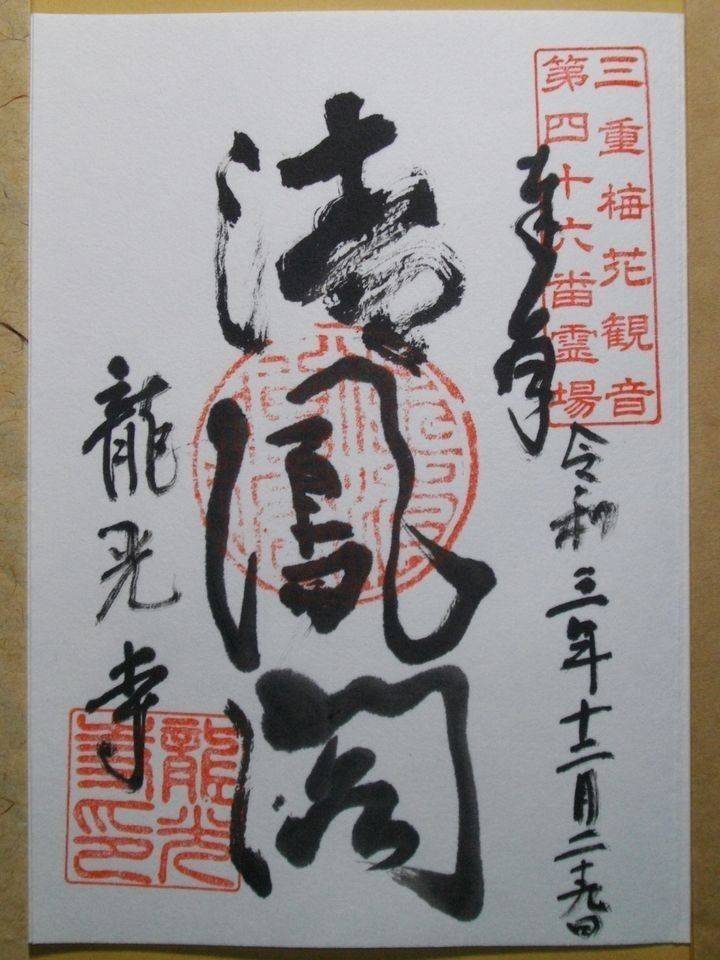 三重梅花観音
第四十六番霊場
奉拝
令和三年十二月二十九日
法鳳閣
龍光寺
龍光
寺印